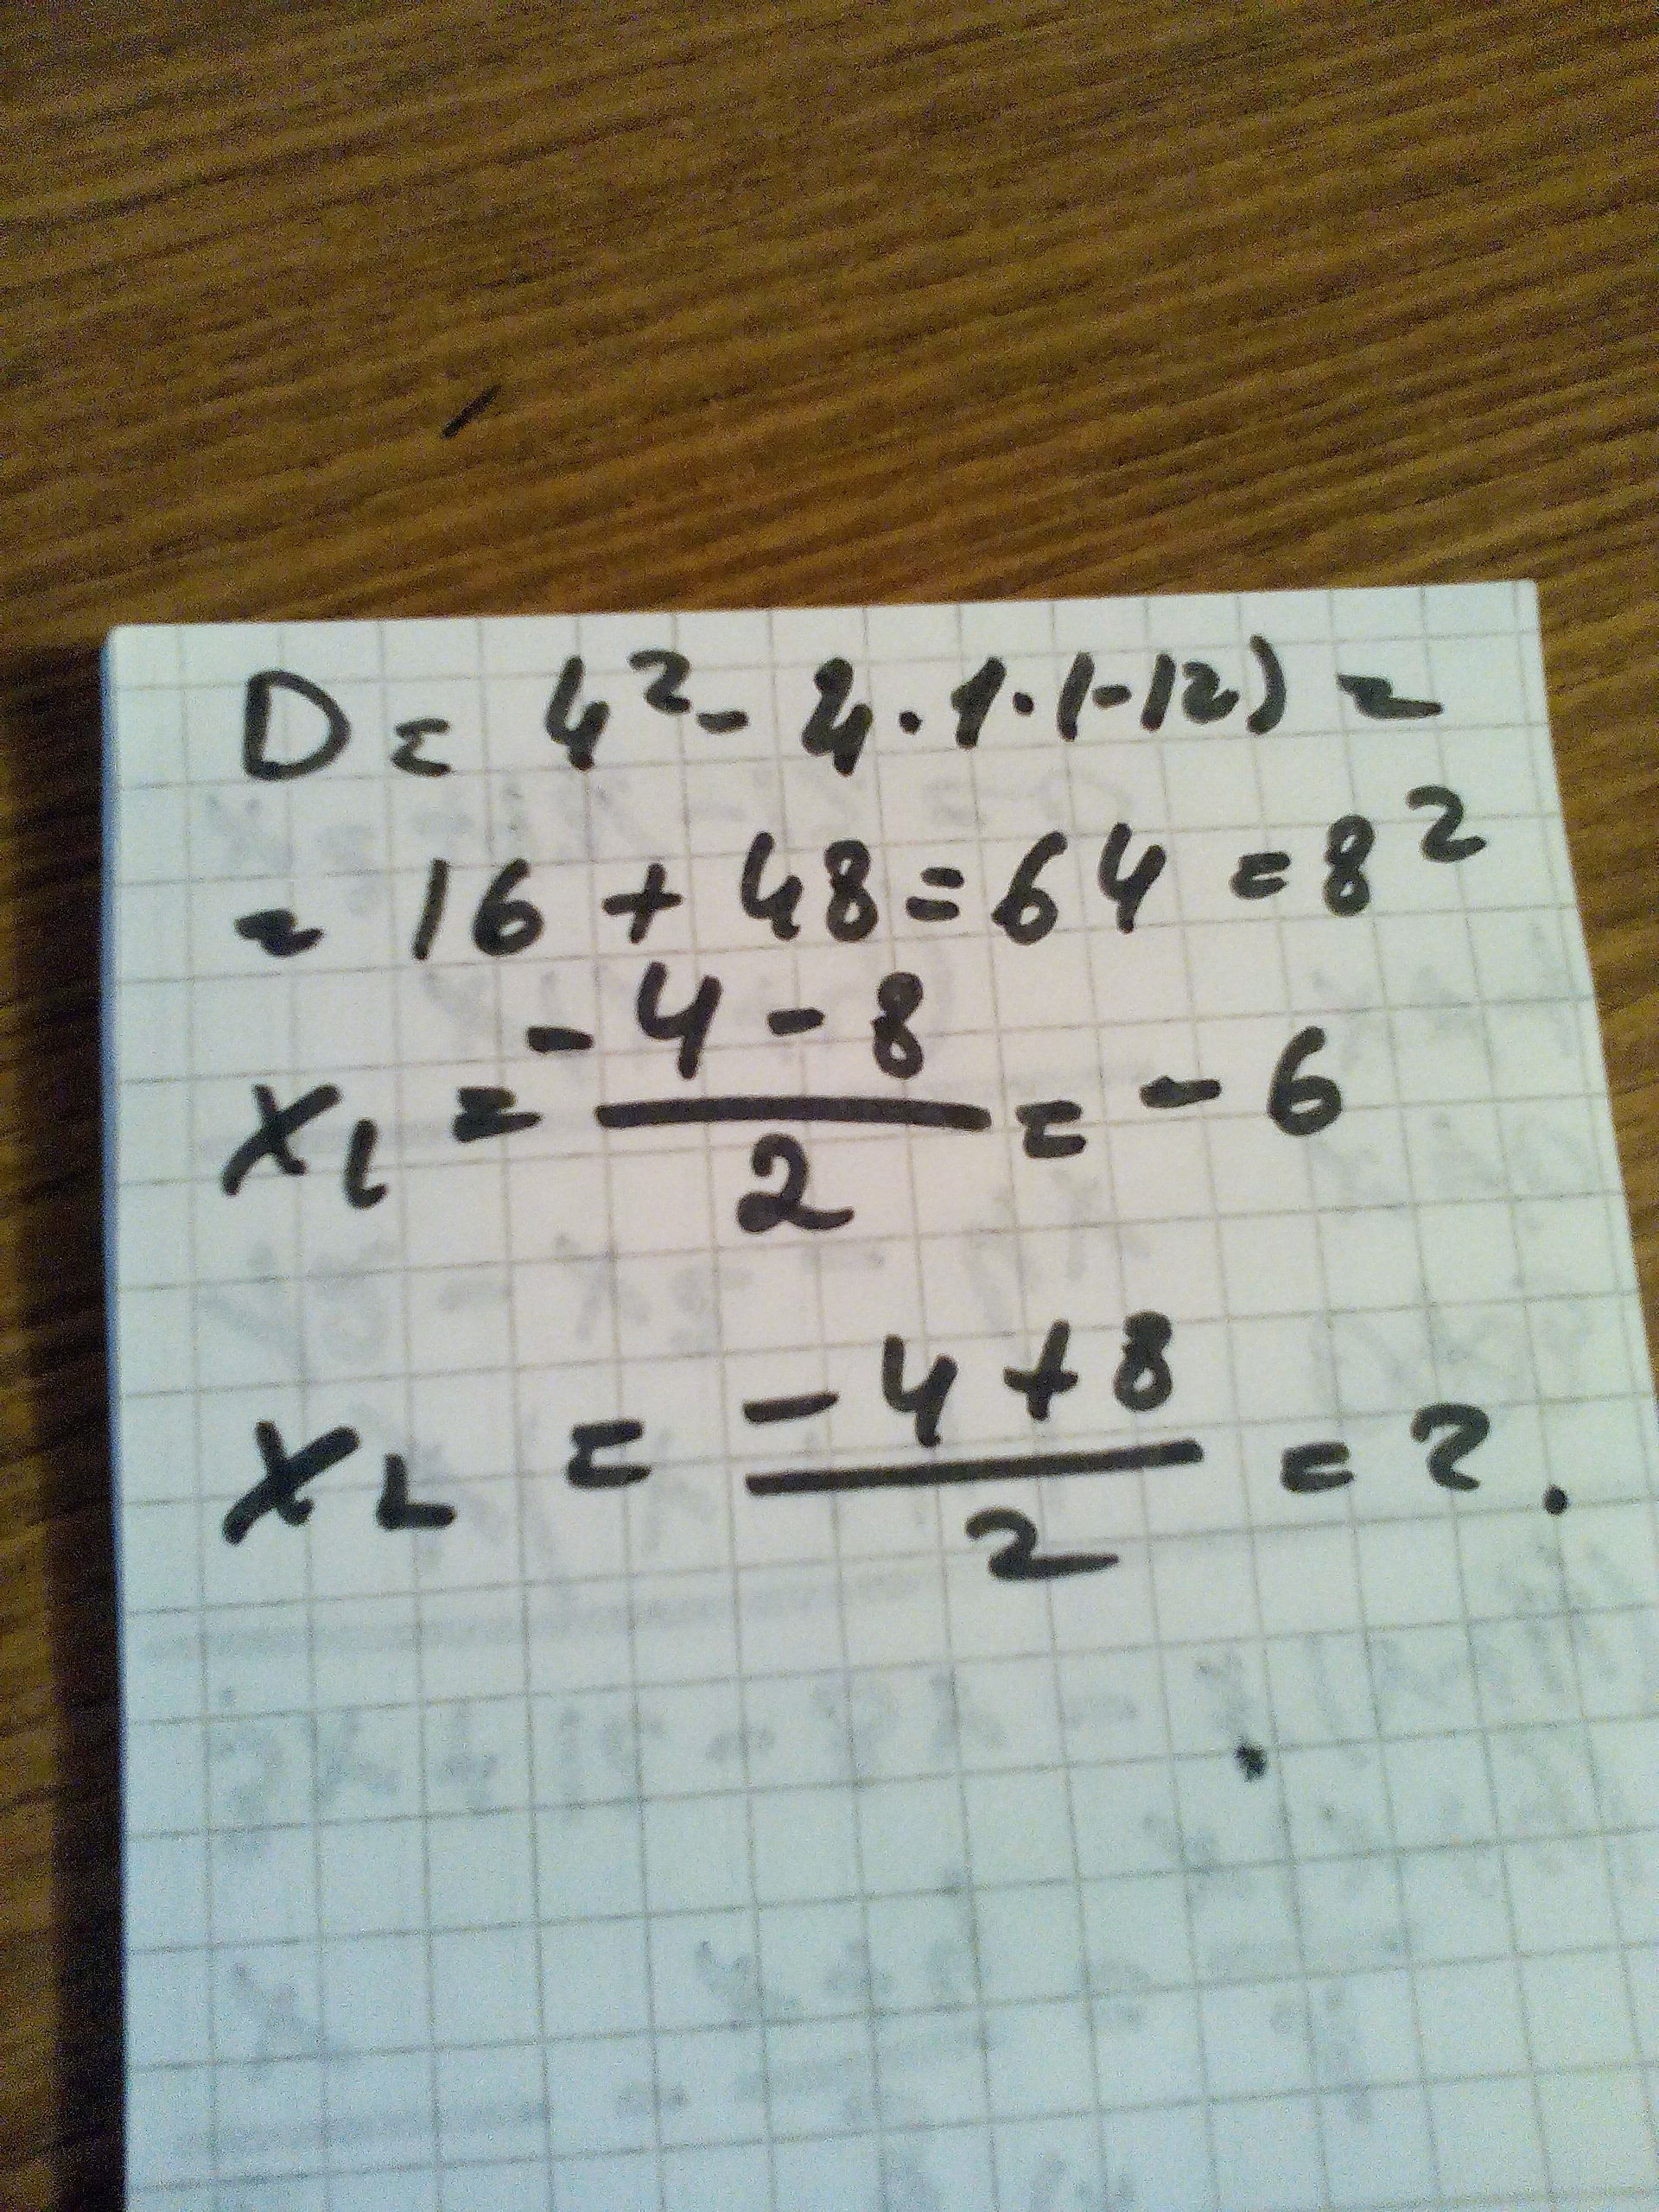 D = 4² - 4 · 1 · (-12) =
= 16 + 48 = 64 = 8²
x₁ = (-4 - 8) / 2 = -6
x₂ = (-4 + 8) / 2 = 2.